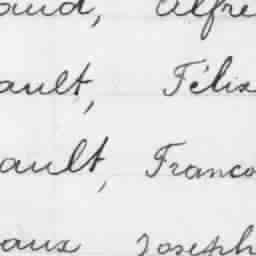 aud, Alfre
ault, Félix
ault, Franço
aux Joseph